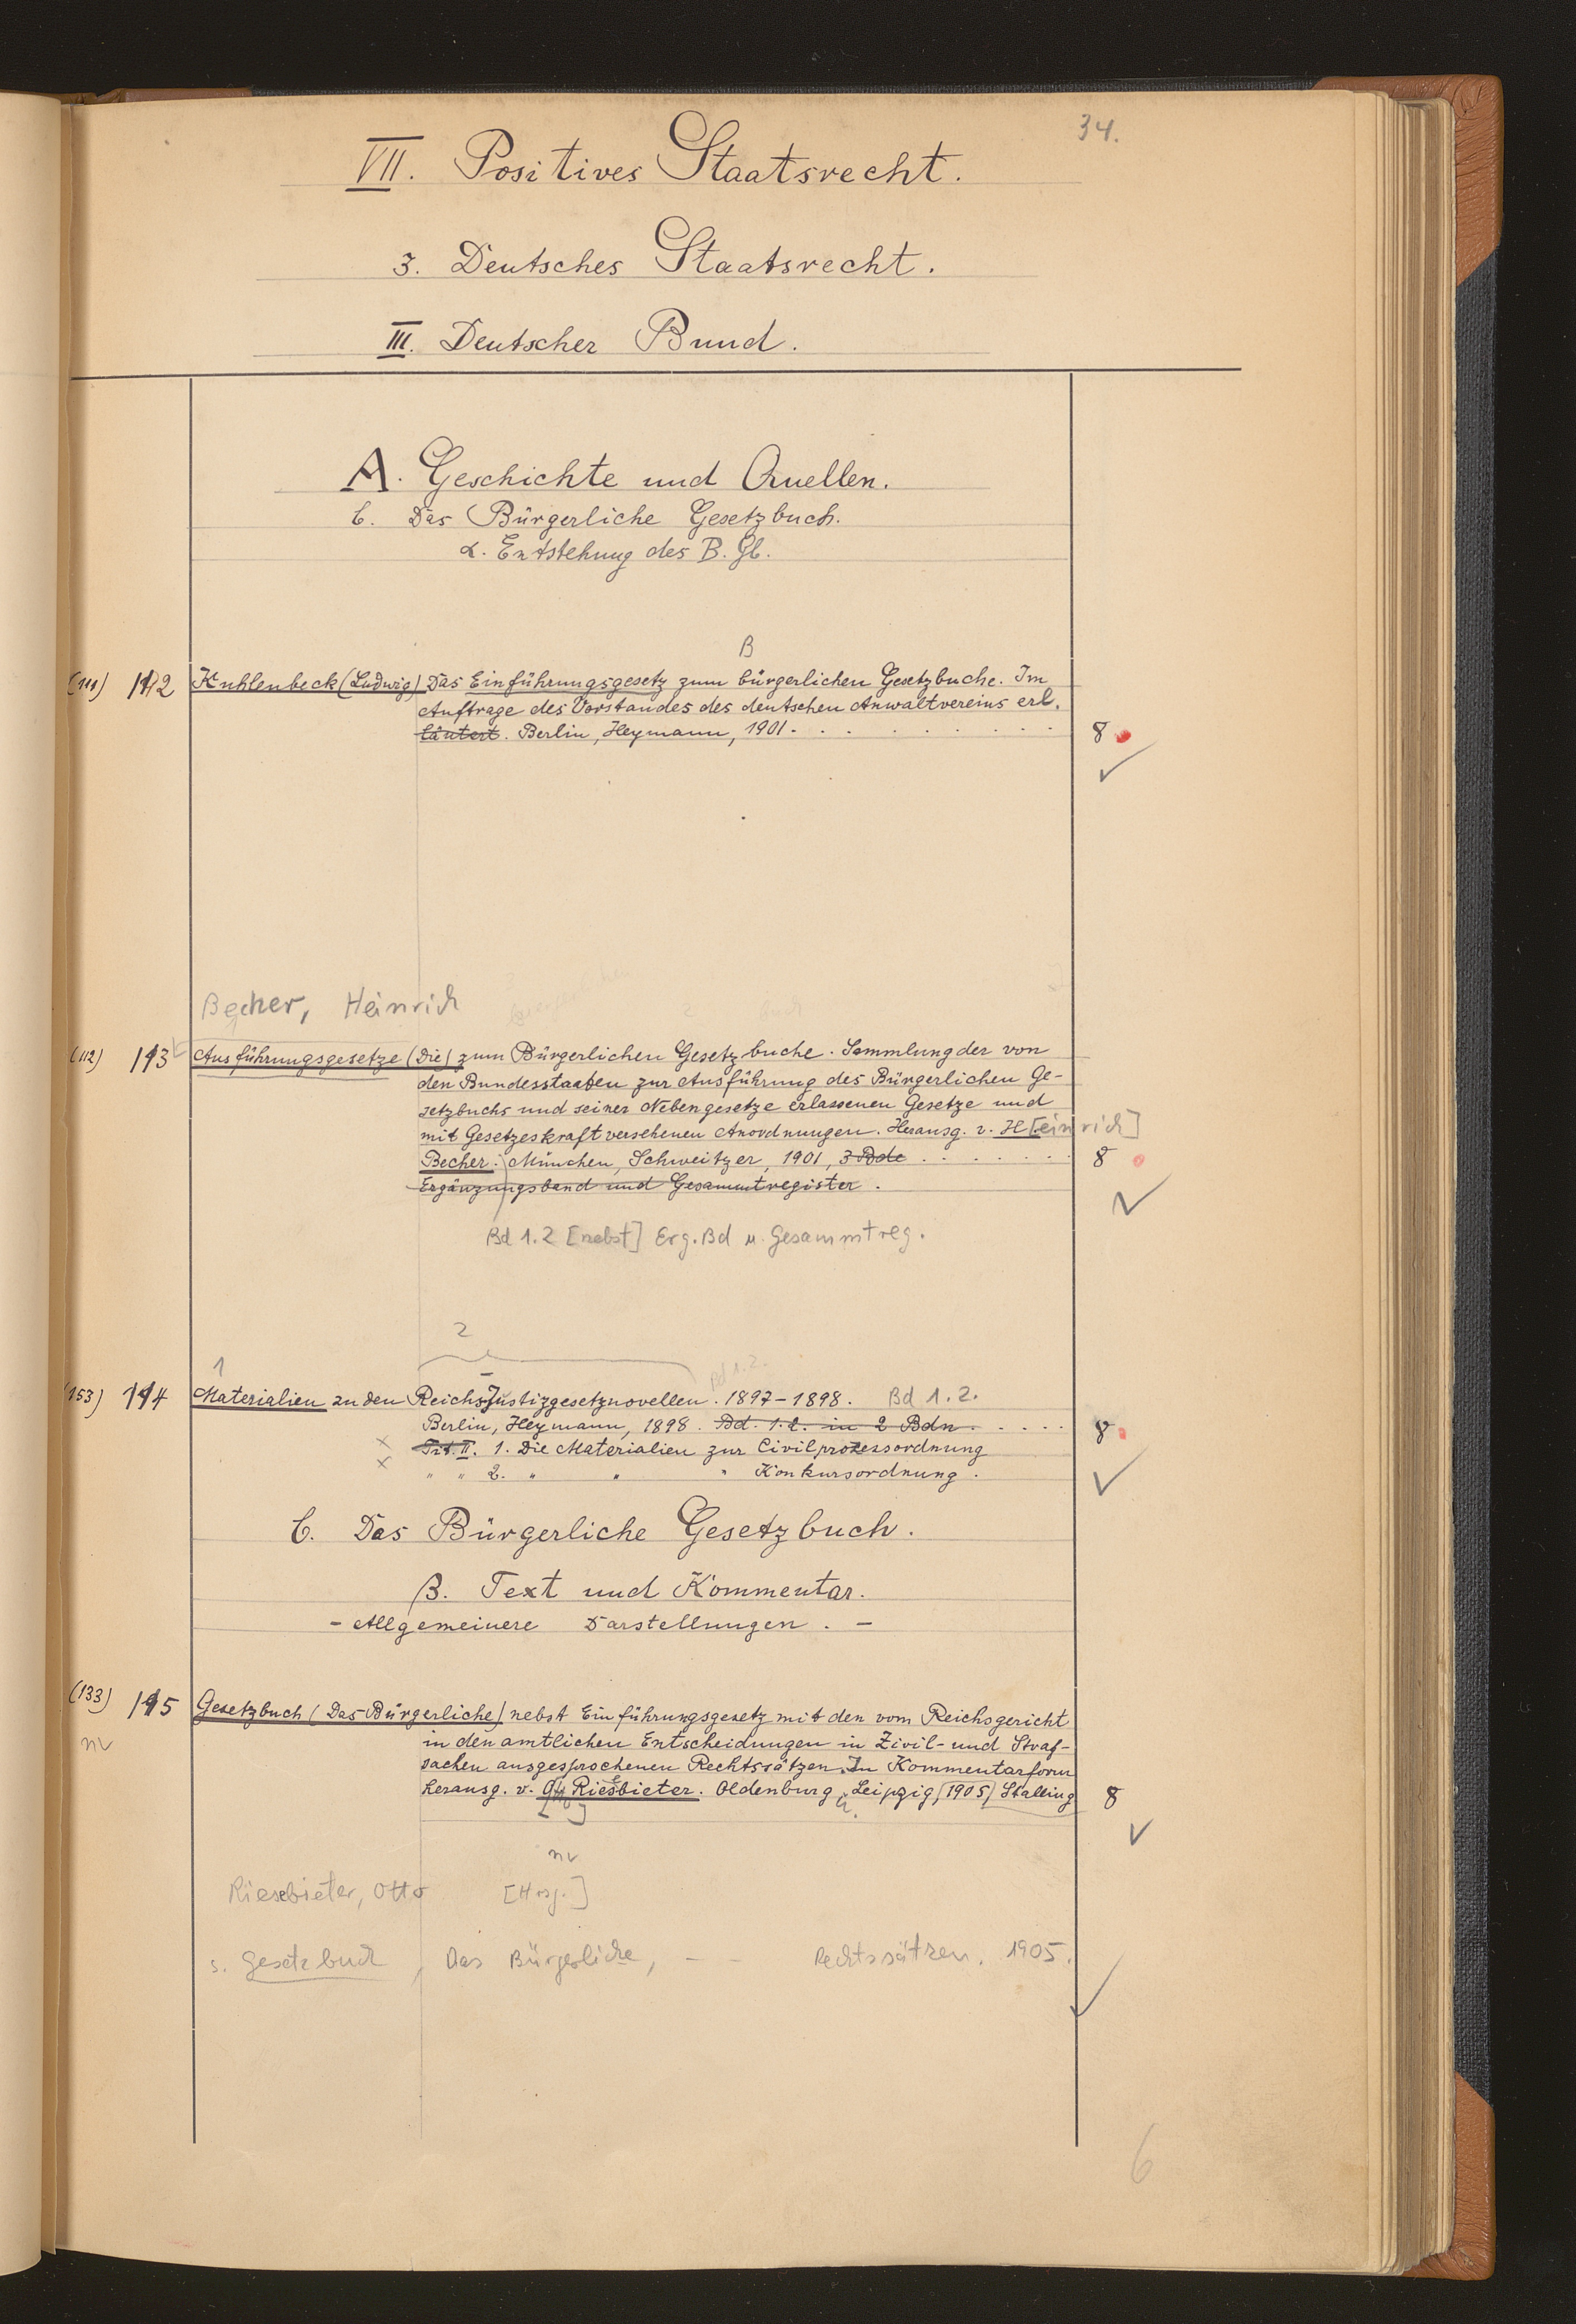 34.
VII. Positives Staatsrecht.
3. Deutsches Staatsrecht.
III. Deutscher Bund.
A. Geschichte und Quellen.
b. Das Bürgerliche Gesetzbuch.
α. Entstehung des B. Gb.
B
(111) 112 Kuhlenbeck (Ludwig) Das Einführungsgesetz zum bürgerlichen Gesetzbuche. Im
Auftrage des Vorstandes des deutschen Anwaltvereins erl.
läutert. Berlin, Heymann, 1901. 8
Becher, Heinrich
(112) 113 Ausführungsgesetze (Die) zum Bürgerlichen Gesetzbuche. Sammlung der von
den Bundesstaaten zur Ausführung des Bürgerlichen Ge-
setzbuchs und seiner Nebengesetze erlassenen Gesetze und
mit Gesetzeskraft versehenen Anordnungen. Herausg. v. H[einrich]
Becher. München, Schweitzer, 1901, 3 Bde 8
Ergänzungsband und Gesammtregister.
Bd 1.2 [nebst] Erg. Bd u. Gesammtreg.
2
1
Bd 1.2.
(153) 114 Materialien zu den Reichs-Justizgesetznovellen. 1897-1898. Bd 1.2.
Berlin, Heymann, 1898. Bd. 1.2. in 2 Bdn. 8
II. 1. Die Materialien zur Civilprozessordnung
" " 2. " " " Konkursordnung.
b. Das Bürgerliche Gesetzbuch.
β. Text und Kommentar.
- Allgemeinere Darstellungen. -
(133) 115 Gesetzbuch (Das Bürgerliche) nebst Einführungsgesetz mit den vom Reichsgericht
nv in den amtlichen Entscheidungen in Zivil- und Straf-
sachen ausgesprochenen Rechtssätzen. In Kommentarform
herausg. v. Riesebieter. Oldenburg u. Leipzig, (1905) Stalling 8
nv
Riesebieter, Otto [Hrsg.]
s. Gesetzbuch, Das Bürgerliche, - - Rechtssätzen. 1905.
6